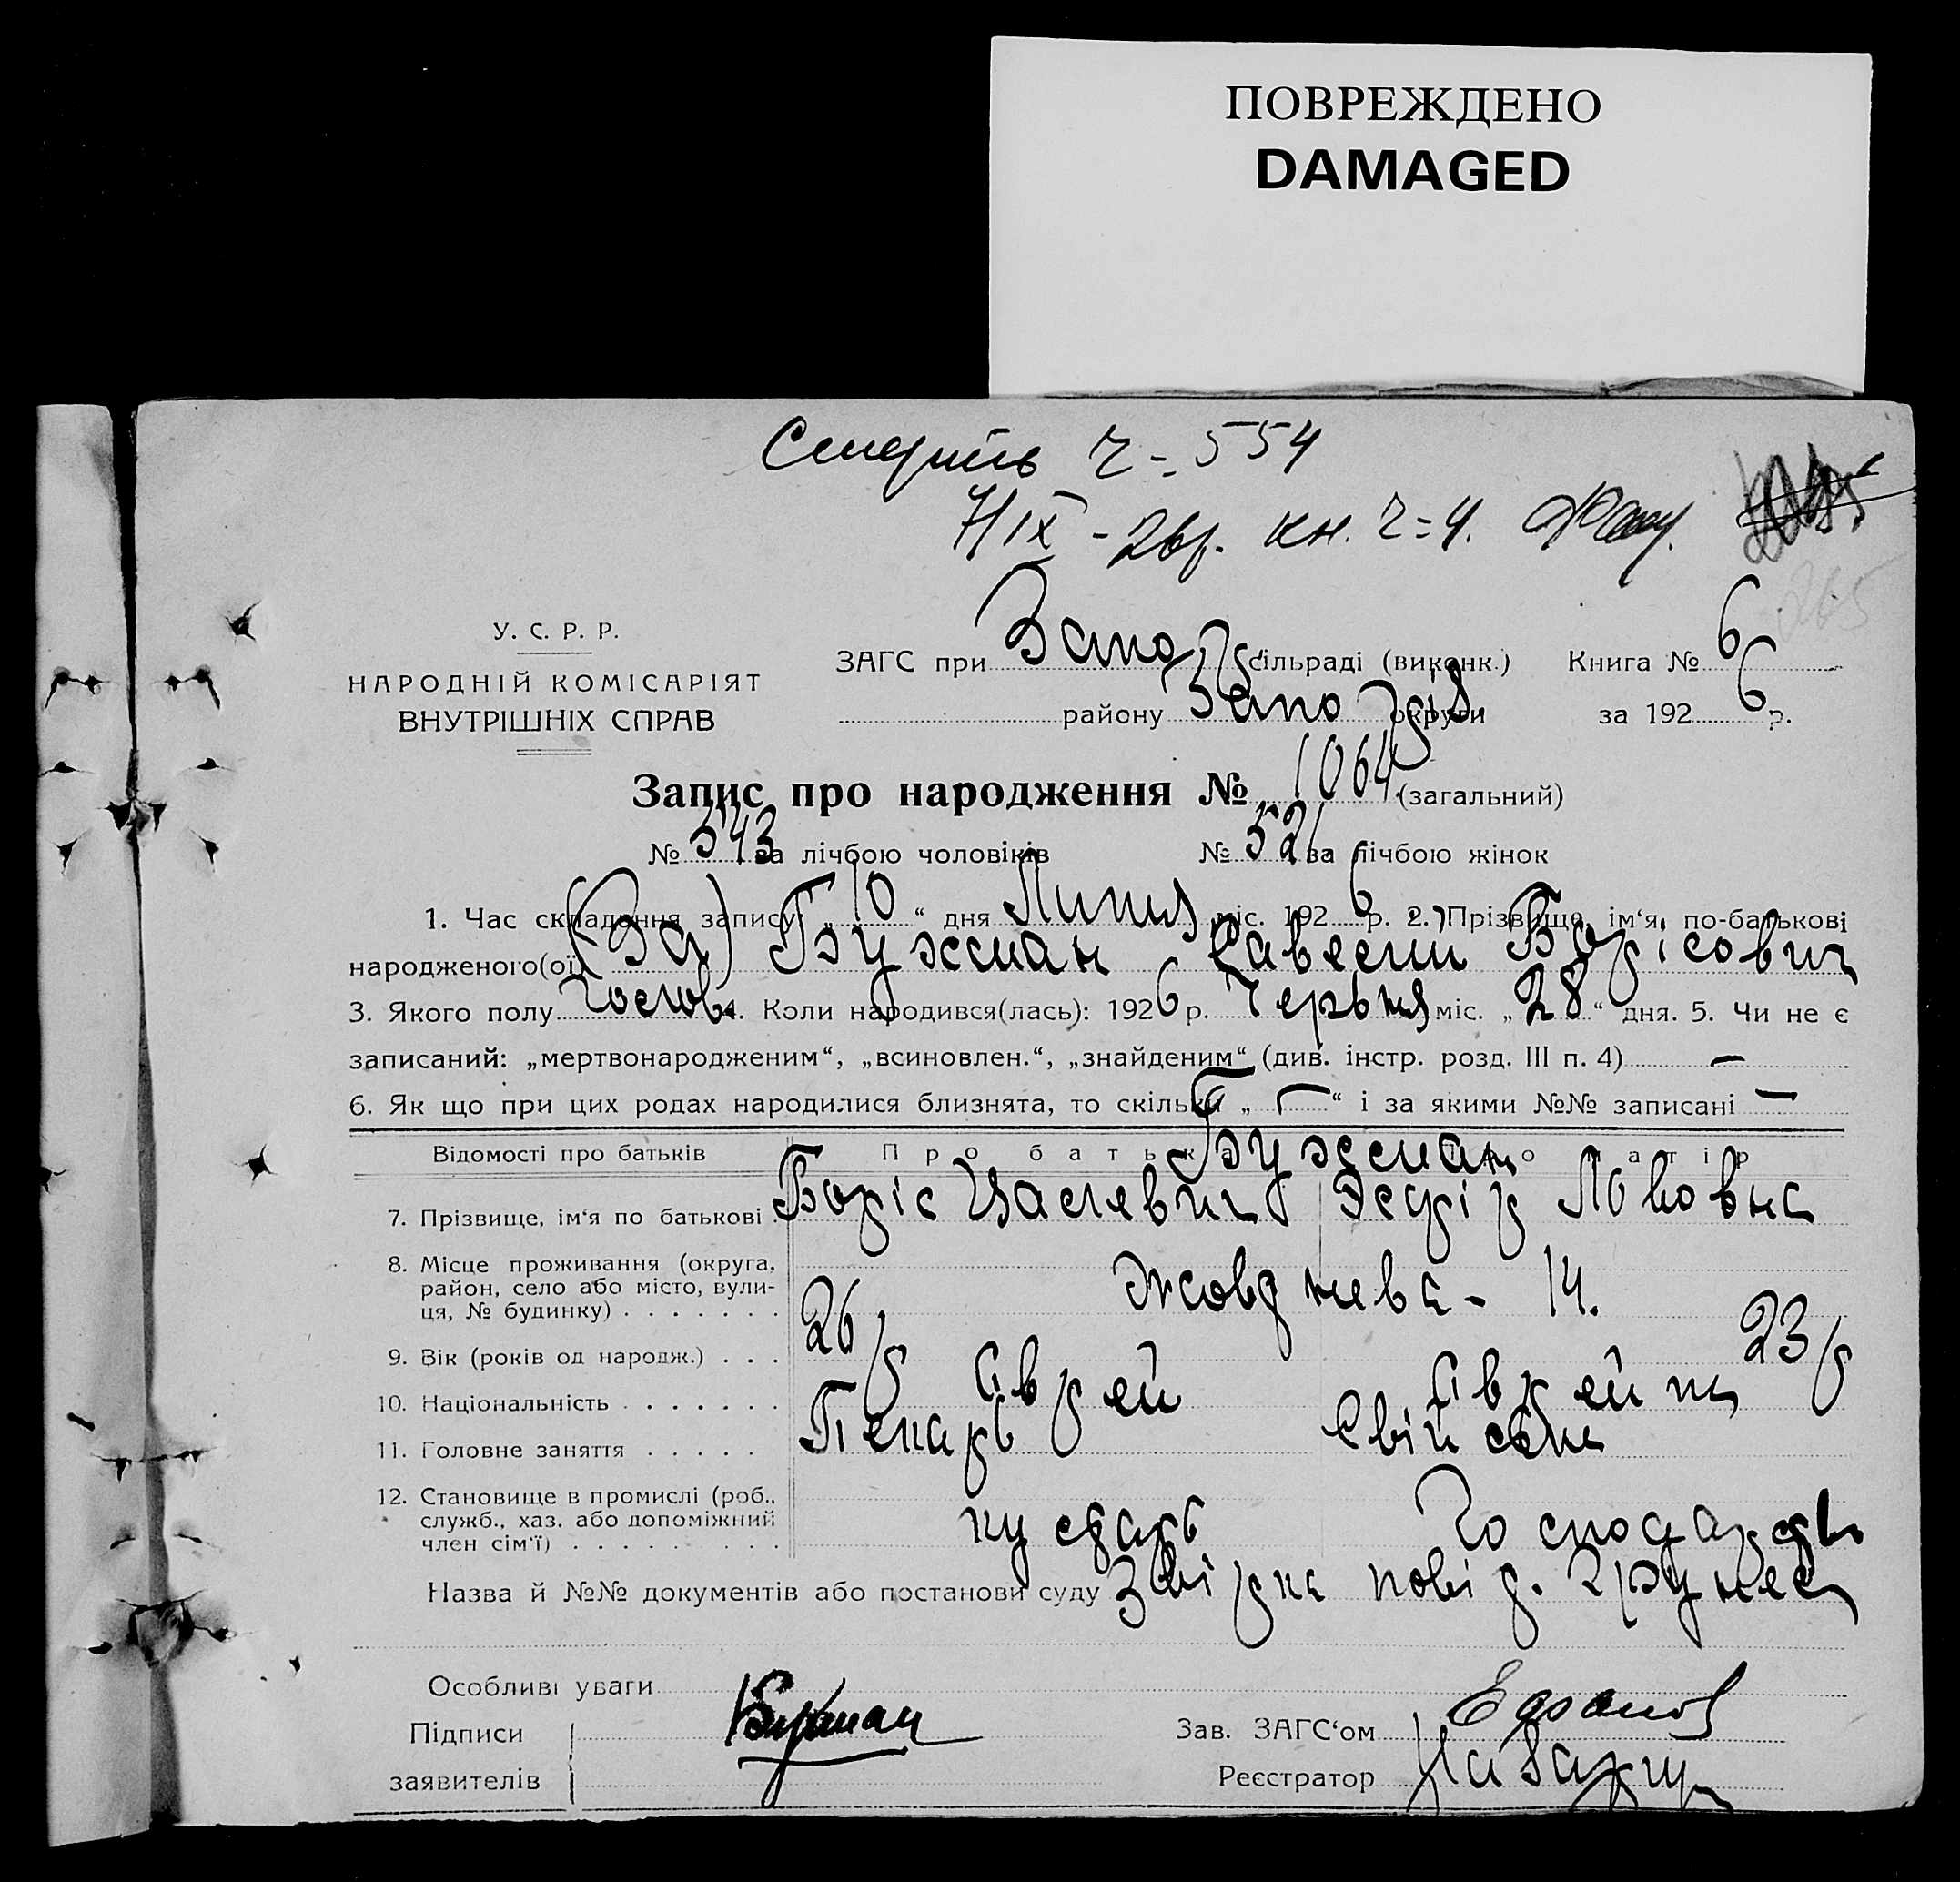 ПОВРЕЖДЕНО
DAMAGED
Смерть ч = 554
7/IX - 26р. кн. ч = 4.
У. С. Р. Р.
НАРОДНІЙ КОМІСАРІЯТ
ВНУТРІШНІХ СПРАВ
ЗАГС при Запо сільраді (виконк.) Книга № 6
району Запо округи за 192 6 р.
Запис про народження № 1064 (загальний)
№ 543 за лічбою чоловіків № 521 за лічбою жінок
1. Час складання запису: „ 10 “ дня Липня міс. 192 6 р. 2. Прізвище, ім‘я, по-батькові
народженого(ої) Бужман Савелий Борісович
3. Якого полу чолов. 4. Коли народився(лась): 1926 р. Червня міс. „ 28 “ дня. 5. Чи не є
записаний: „мертвонародженим“, „всиновлен.“, „знайденим“ (див. інстр. розд. III п. 4) —
6. Як що при цих родах народилися близнята, то скільки „ — “ і за якими №№ записані —
Відомості про батьків Про батька Про матір
Бужман
7. Прізвище, ім‘я по батькові Боріс Ізраілевич Эсфір Львовна
8. Місце проживання (округа,
район, село або місто, вули-
ця, № будинку) Жовтнева - 14.
9. Вік (років од народж.) 26 р 23 р
10. Національність Єврей Єврейка
11. Головне заняття Пекарь Євійська
12. Становище в промислі (роб.,
служб., хаз. або допоміжний
член сім‘ї) кустарь Господарств
Назва й №№ документів або постанови суду
Особливі уваги
Підписи Бужман Зав. ЗАГС‘ом
заявителів Реєстратор